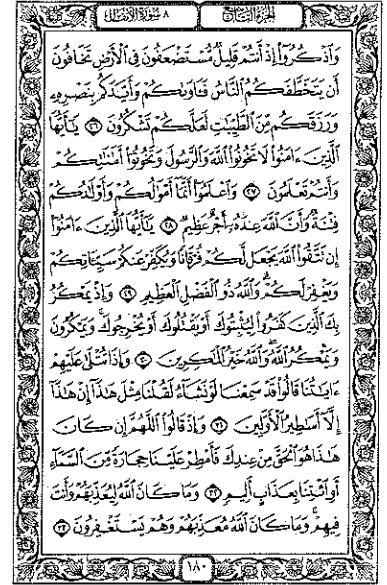 ٨ سورة الأنفال
الجزء التاسع
وَاذْكُرُوا إِذْ أَنتُمْ قَلِيلٌ مُّسْتَضْعَفُونَ فِي الْأَرْضِ تَخَافُونَ
أَن يَتَخَطَّفَكُمُ النَّاسُ فَـَٔاوَىٰكُمْ وَأَيَّدَكُم بِنَصْرِهِۦ
وَرَزَقَكُم مِّنَ الطَّيِّبَٰتِ لَعَلَّكُمْ تَشْكُرُونَ ٢٦ يَٰٓأَيُّهَا
الَّذِينَ ءَامَنُوا لَا تَخُونُوا اللَّهَ وَالرَّسُولَ وَتَخُونُوٓا أَمَٰنَٰتِكُمْ
وَأَنتُمْ تَعْلَمُونَ ٢٧ وَاعْلَمُوٓا أَنَّمَآ أَمْوَٰلُكُمْ وَأَوْلَٰدُكُمْ
فِتْنَةٌ وَأَنَّ اللَّهَ عِندَهُۥٓ أَجْرٌ عَظِيمٌ ٢٨ يَٰٓأَيُّهَا الَّذِينَ ءَامَنُوٓا
إِن تَتَّقُوا اللَّهَ يَجْعَل لَّكُمْ فُرْقَانًا وَيُكَفِّرْ عَنكُمْ سَيِّـَٔاتِكُمْ
وَيَغْفِرْ لَكُمْ وَاللَّهُ ذُو الْفَضْلِ الْعَظِيمِ ٢٩ وَإِذْ يَمْكُرُ
بِكَ الَّذِينَ كَفَرُوا لِيُثْبِتُوكَ أَوْ يَقْتُلُوكَ أَوْ يُخْرِجُوكَ وَيَمْكُرُونَ
وَيَمْكُرُ اللَّهُ وَاللَّهُ خَيْرُ الْمَٰكِرِينَ ٣٠ وَإِذَا تُتْلَىٰ عَلَيْهِمْ
ءَايَٰتُنَا قَالُوا قَدْ سَمِعْنَا لَوْ نَشَآءُ لَقُلْنَا مِثْلَ هَٰذَآ إِنْ هَٰذَآ
إِلَّآ أَسَٰطِيرُ الْأَوَّلِينَ ٣١ وَإِذْ قَالُوا اللَّهُمَّ إِن كَانَ
هَٰذَا هُوَ الْحَقَّ مِنْ عِندِكَ فَأَمْطِرْ عَلَيْنَا حِجَارَةً مِّنَ السَّمَآءِ
أَوِ ائْتِنَا بِعَذَابٍ أَلِيمٍ ٣٢ وَمَا كَانَ اللَّهُ لِيُعَذِّبَهُمْ وَأَنتَ
فِيهِمْ وَمَا كَانَ اللَّهُ مُعَذِّبَهُمْ وَهُمْ يَسْتَغْفِرُونَ ٣٣
١٨٠